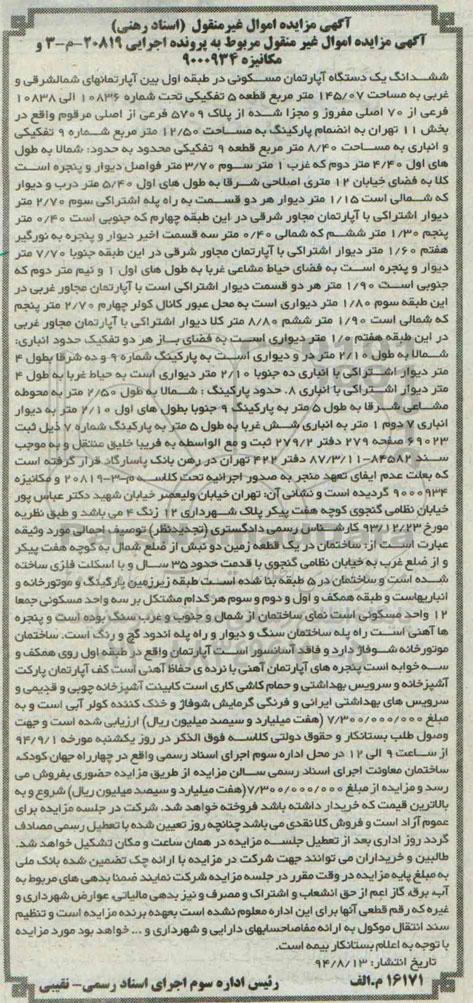 آگهی مزایده اموال غیرمنقول (اسناد رهنی)
آگهی مزایده اموال غیر منقول مربوط به پرونده اجرایی ۲۰۸۱۹-م-۳ و
مکانیزه ۹۰۰۰۹۳۴
ششدانگ یک دستگاه آپارتمان مسکونی در طبقه اول بین آپارتمانهای شمالشرقی و
غربی به مساحت ۱۴۵/۰۷ متر مربع قطعه ۵ تفکیکی تحت شماره ۱۰۸۳۶ الی ۱۰۸۳۸
فرعی از ۷۰ اصلی مفروز و مجزا شده از پلاک ۵۷۰۹ فرعی از اصلی مرقوم واقع در
بخش ۱۱ تهران به انضمام پارکینگ به مساحت ۱۲/۵۰ متر مربع شماره ۹ تفکیکی
و انباری به مساحت ۸/۴۰ متر مربع قطعه ۹ تفکیکی محدود به حدود: شمالا به طول
های اول ۴/۴۰ متر دوم که غرب ۱ متر سوم ۳/۷۰ متر فواصل دیوار و پنجره است
کلا به فضای خیابان ۱۲ متری اصلاحی شرقا به طول های اول ۵/۴۰ متر درب و دیوار
که شمالی است ۱/۱۵ متر دیوار هر دو قسمت به راه پله اشتراکی سوم ۲/۷۰ متر
دیوار اشتراکی با آپارتمان مجاور شرقی در این طبقه چهارم که جنوبی است ۰/۴۰ متر
پنجم ۱/۳۰ متر ششم که شمالی ۰/۴۰ متر سه قسمت اخیر دیوار و پنجره به نورگیر
هفتم ۱/۶۰ متر دیوار اشتراکی با آپارتمان مجاور شرقی در این طبقه جنوبا ۷/۷۰ متر
دیوار و پنجره است به فضای حیاط مشاعی غربا به طول های اول ۱ و نیم متر دوم که
جنوبی است ۱/۹۰ متر هر دو قسمت دیوار اشتراکی است با آپارتمان مجاور غربی در
این طبقه سوم ۱/۸۰ متر دیواری است به محل عبور کانال کولر چهارم ۲/۷۰ متر پنجم
که شمالی است ۱/۹۰ متر ششم ۸/۸۰ متر کلا دیوار اشتراکی با آپارتمان مجاور غربی
در این طبقه هفتم ۱ متر دیواری است به فضای باز هر دو تفکیک حدود انباری:
شمالا به طول ۲/۱۰ متر در و دیواری است به پارکینگ شماره ۹ و ده شرقا بطول ۴
متر دیوار اشتراکی با انباری ده جنوبا ۲/۱۰ متر دیواری است به حیاط غربا به طول ۴
متر دیوار اشتراکی با انباری ۸. حدود پارکینگ : شمالا به طول ۲/۵۰ متر به محوطه
مشاعی شرقا به طول ۵ متر به پارکینگ ۹ جنوبا بطول های اول ۲/۱۰ متر به دیوار
انباری ۷ دوم ۱ متر به انباری شش غربا به طول ۵ متر به پارکینگ شماره ۷ ذیل ثبت
۶۹۰۲۳ صفحه ۲۷۹ دفتر ۲۷۹/۲ ثبت و مع الواسطه به فریبا خلیق منتقل و به موجب
سند ۸۴۵۸۲-۸۷/۳/۱۱ دفتر ۴۲۲ تهران در رهن بانک پاسارگاد قرار گرفته است
که بعلت عدم ایفای تعهد منجر به صدور اجرائیه تحت کلاسه م-۳-۲۰۸۱۹ و مکانیزه
۹۰۰۰۹۳۴ گردیده است و نشانی آن: تهران خیابان ولیعصر خیابان شهید دکتر عباس پور
خیابان نظامی گنجوی کوچه هفت پیکر پلاک شهرداری ۱۲ زنگ ۴ می باشد و طبق نظریه
مورخ ۹۳/۱۲/۲۳ کارشناس رسمی دادگستری (تجدیدنظر) توصیف اجمالی مورد وثیقه
عبارت است از: ساختمان در یک قطعه زمین دو نبش از ضلع شمال به کوچه هفت پیکر
و از ضلع غرب به خیابان نظامی گنجوی با قدمت حدود ۳۵ سال و با اسکلت فلزی ساخته
شده است و ساختمان در ۵ طبقه بنا شده است طبقه زیرزمین پارکینگ و موتورخانه و
انباریهاست و طبقه همکف و اول و دوم و سوم هر کدام مشتکل بر سه واحد مسکونی جمعا
۱۲ واحد مسکونی است نمای ساختمان از شمال و جنوب و غرب سنگ بوده است و پنجره
ها آهنی است راه پله ساختمان سنگ و دیوار و راه پله اندود گچ و رنگ است. ساختمان
موتورخانه شوفاژ دارد و فاقد آسانسور است آپارتمان واقع در طبقه اول روی همکف و
سه خوابه است پنجره های آپارتمان آهنی با نرده ی حفاظ آهنی است کف آپارتمان پارکت
آشپزخانه و سرویس بهداشتی و حمام کاشی کاری است کابینت آشپزخانه چوبی و قدیمی و
سرویس های بهداشتی ایرانی و فرنگی گرمایش شوفاژ و خنک کننده کولر آبی است و به
مبلغ ۷/۳۰۰/۰۰۰/۰۰۰ (هفت میلیارد و سیصد میلیون ریال) ارزیابی شده است و جهت
وصول طلب بستانکار و حقوق دولتی کلاسه فوق الذکر در روز یکشنبه مورخه ۹۴/۹/۱
از ساعت ۹ الی ۱۲ در محل اداره سوم اجرای اسناد رسمی واقع در چهارراه جهان کودک،
ساختمان معاونت اجرای اسناد رسمی سالن مزایده از طریق مزایده حضوری بفروش می
رسد و مزایده از مبلغ ۷/۳۰۰/۰۰۰/۰۰۰(هفت میلیارد و سیصد میلیون ریال) شروع و به
بالاترین قیمت که خریدار داشته باشد فروخته خواهد شد. شرکت در جلسه مزایده برای
عموم آزاد است و فروش کلا نقدی می باشد چنانچه روز تعیین شده با تعطیل رسمی مصادف
گردد روز اداری بعد از تعطیل جلسه مزایده در همان ساعت و مکان تشکیل خواهد شد.
طالبین و خریداران می توانند جهت شرکت در مزایده با ارائه چک تضمین شده بانک ملی
به مبلغ پایه مزایده در وقت مقرر در جلسه مزایده شرکت نمایند ضمنا بدهی های مربوط به
آب، برق، گاز اعم از حق انشعاب و اشتراک و مصرف و نیز بدهی مالیاتی عوارض شهرداری و
غیره که رقم قطعی آنها برای این اداره معلوم نشده است بعهده برنده مزایده است و تنظیم
سند انتقال موکول به ارائه مفاصاحسابهای دارایی و شهرداری و ... خواهد بود مورد مزایده
با توجه به اعلام بستانکار بیمه است.
تاریخ انتشار: ۹۴/۸/۱۳
۱۶۱۷۱ م.الف رئیس اداره سوم اجرای اسناد رسمی- نقیبی